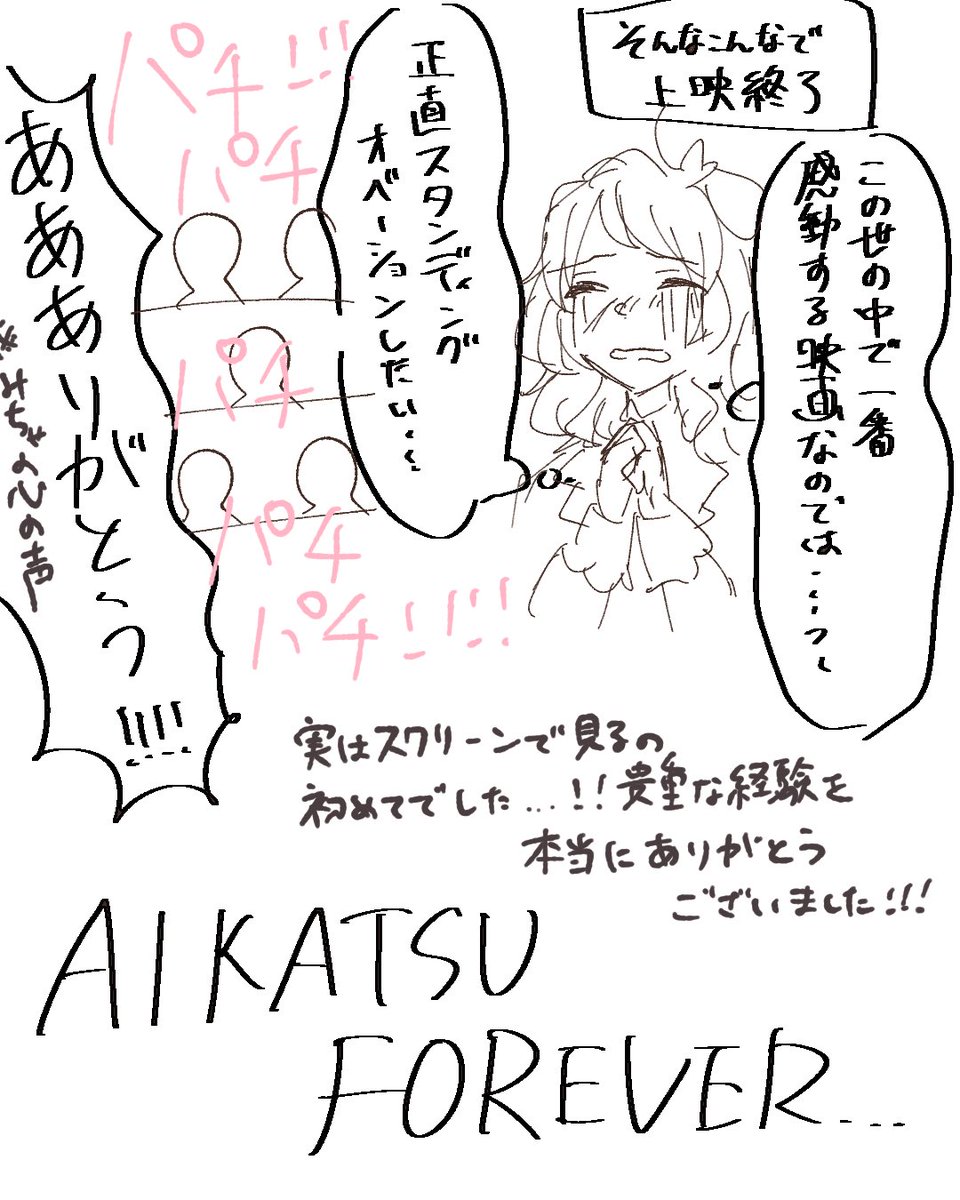 そんなこんなで
上映終了
この世の中で一番
感動する映画なのでは……っ
正直スタンディング
オベーションしたい…
パチ!!!
パチ
パチ
パチ
パチ!!!!
ああありがとうっ!!!!
※みちゃ心の声
実はスクリーンで見るの
初めてでした…!!貴重な経験を
本当にありがとう
ございました!!!
AIKATSU
FOREVER...